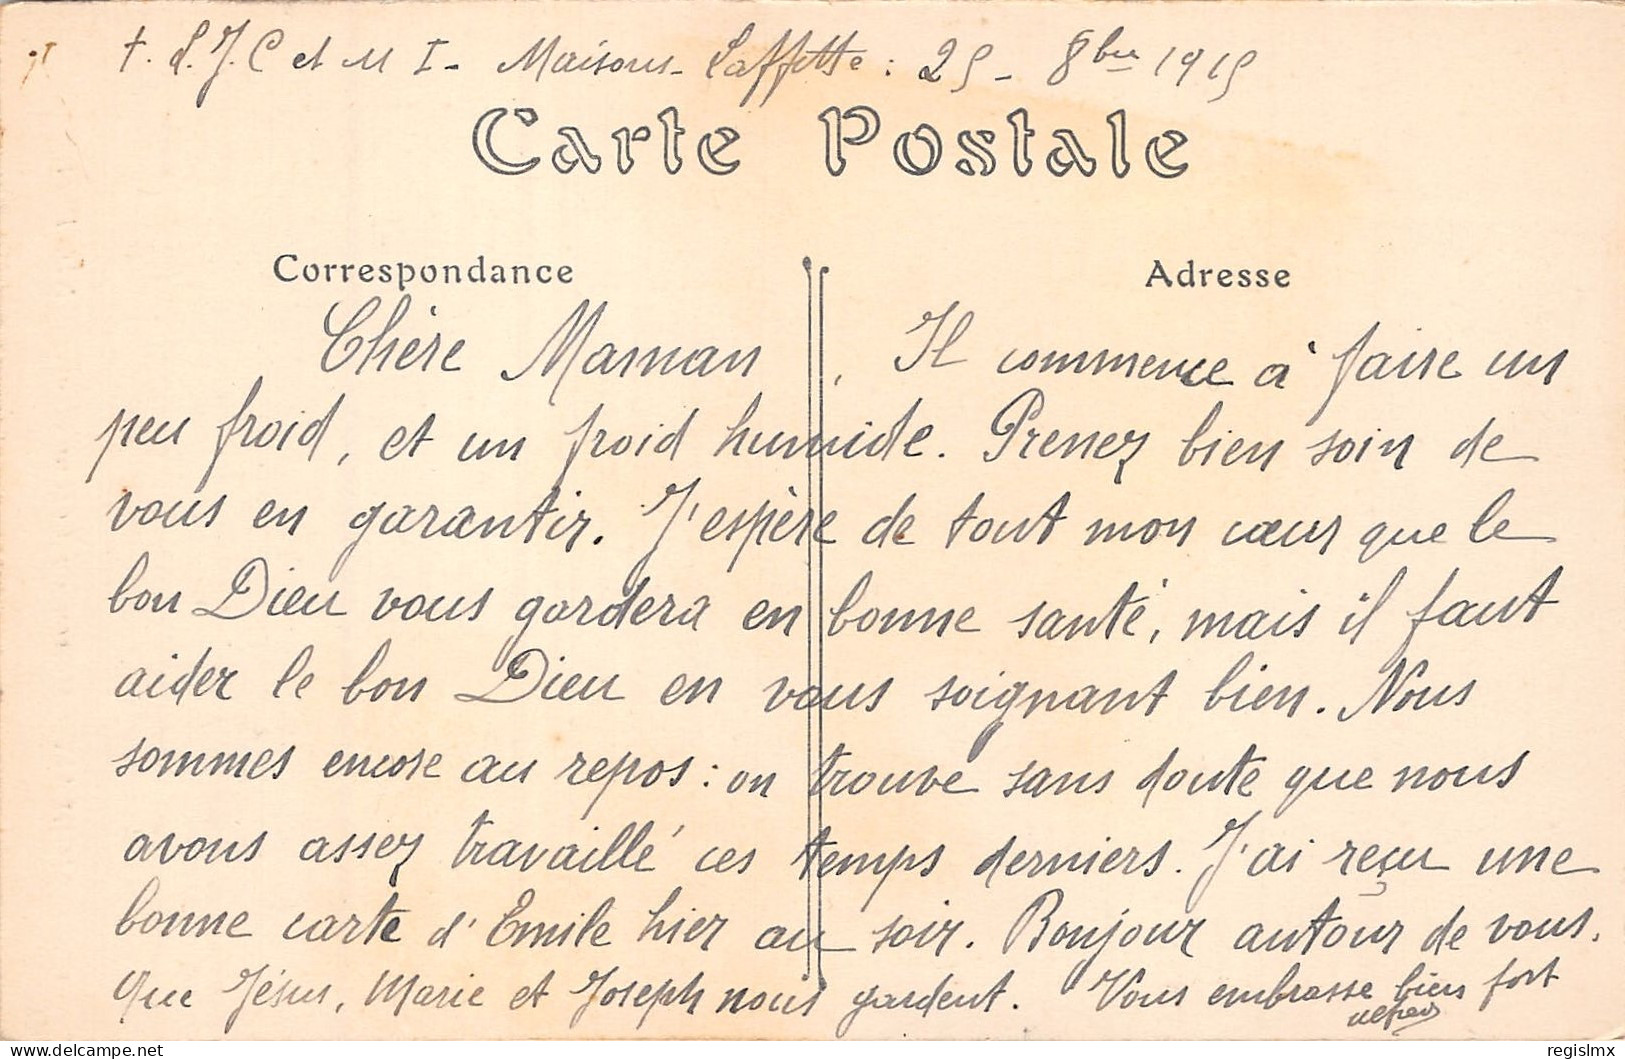 +. L. J. C et M I - Maisons-Laffitte : 25 - 8bre 1915
Carte Postale
Correspondance
Adresse
Chère Maman, Il commence à faire un
peu froid, et un froid humide. Prenez bien soin de
vous en garantir. J'espère de tout mon cœur que le
bon Dieu vous gardera en bonne santé, mais il faut
aider le bon Dieu en vous soignant bien. Nous
sommes encore au repos : on trouve sans doute que nous
avons assez travaillé ces temps derniers. J'ai reçu une
bonne carte d'Emile hier au soir. Bonjour autour de vous.
Que Jésus, Marie et Joseph nous gardent. Vous embrasse bien fort
regislmx